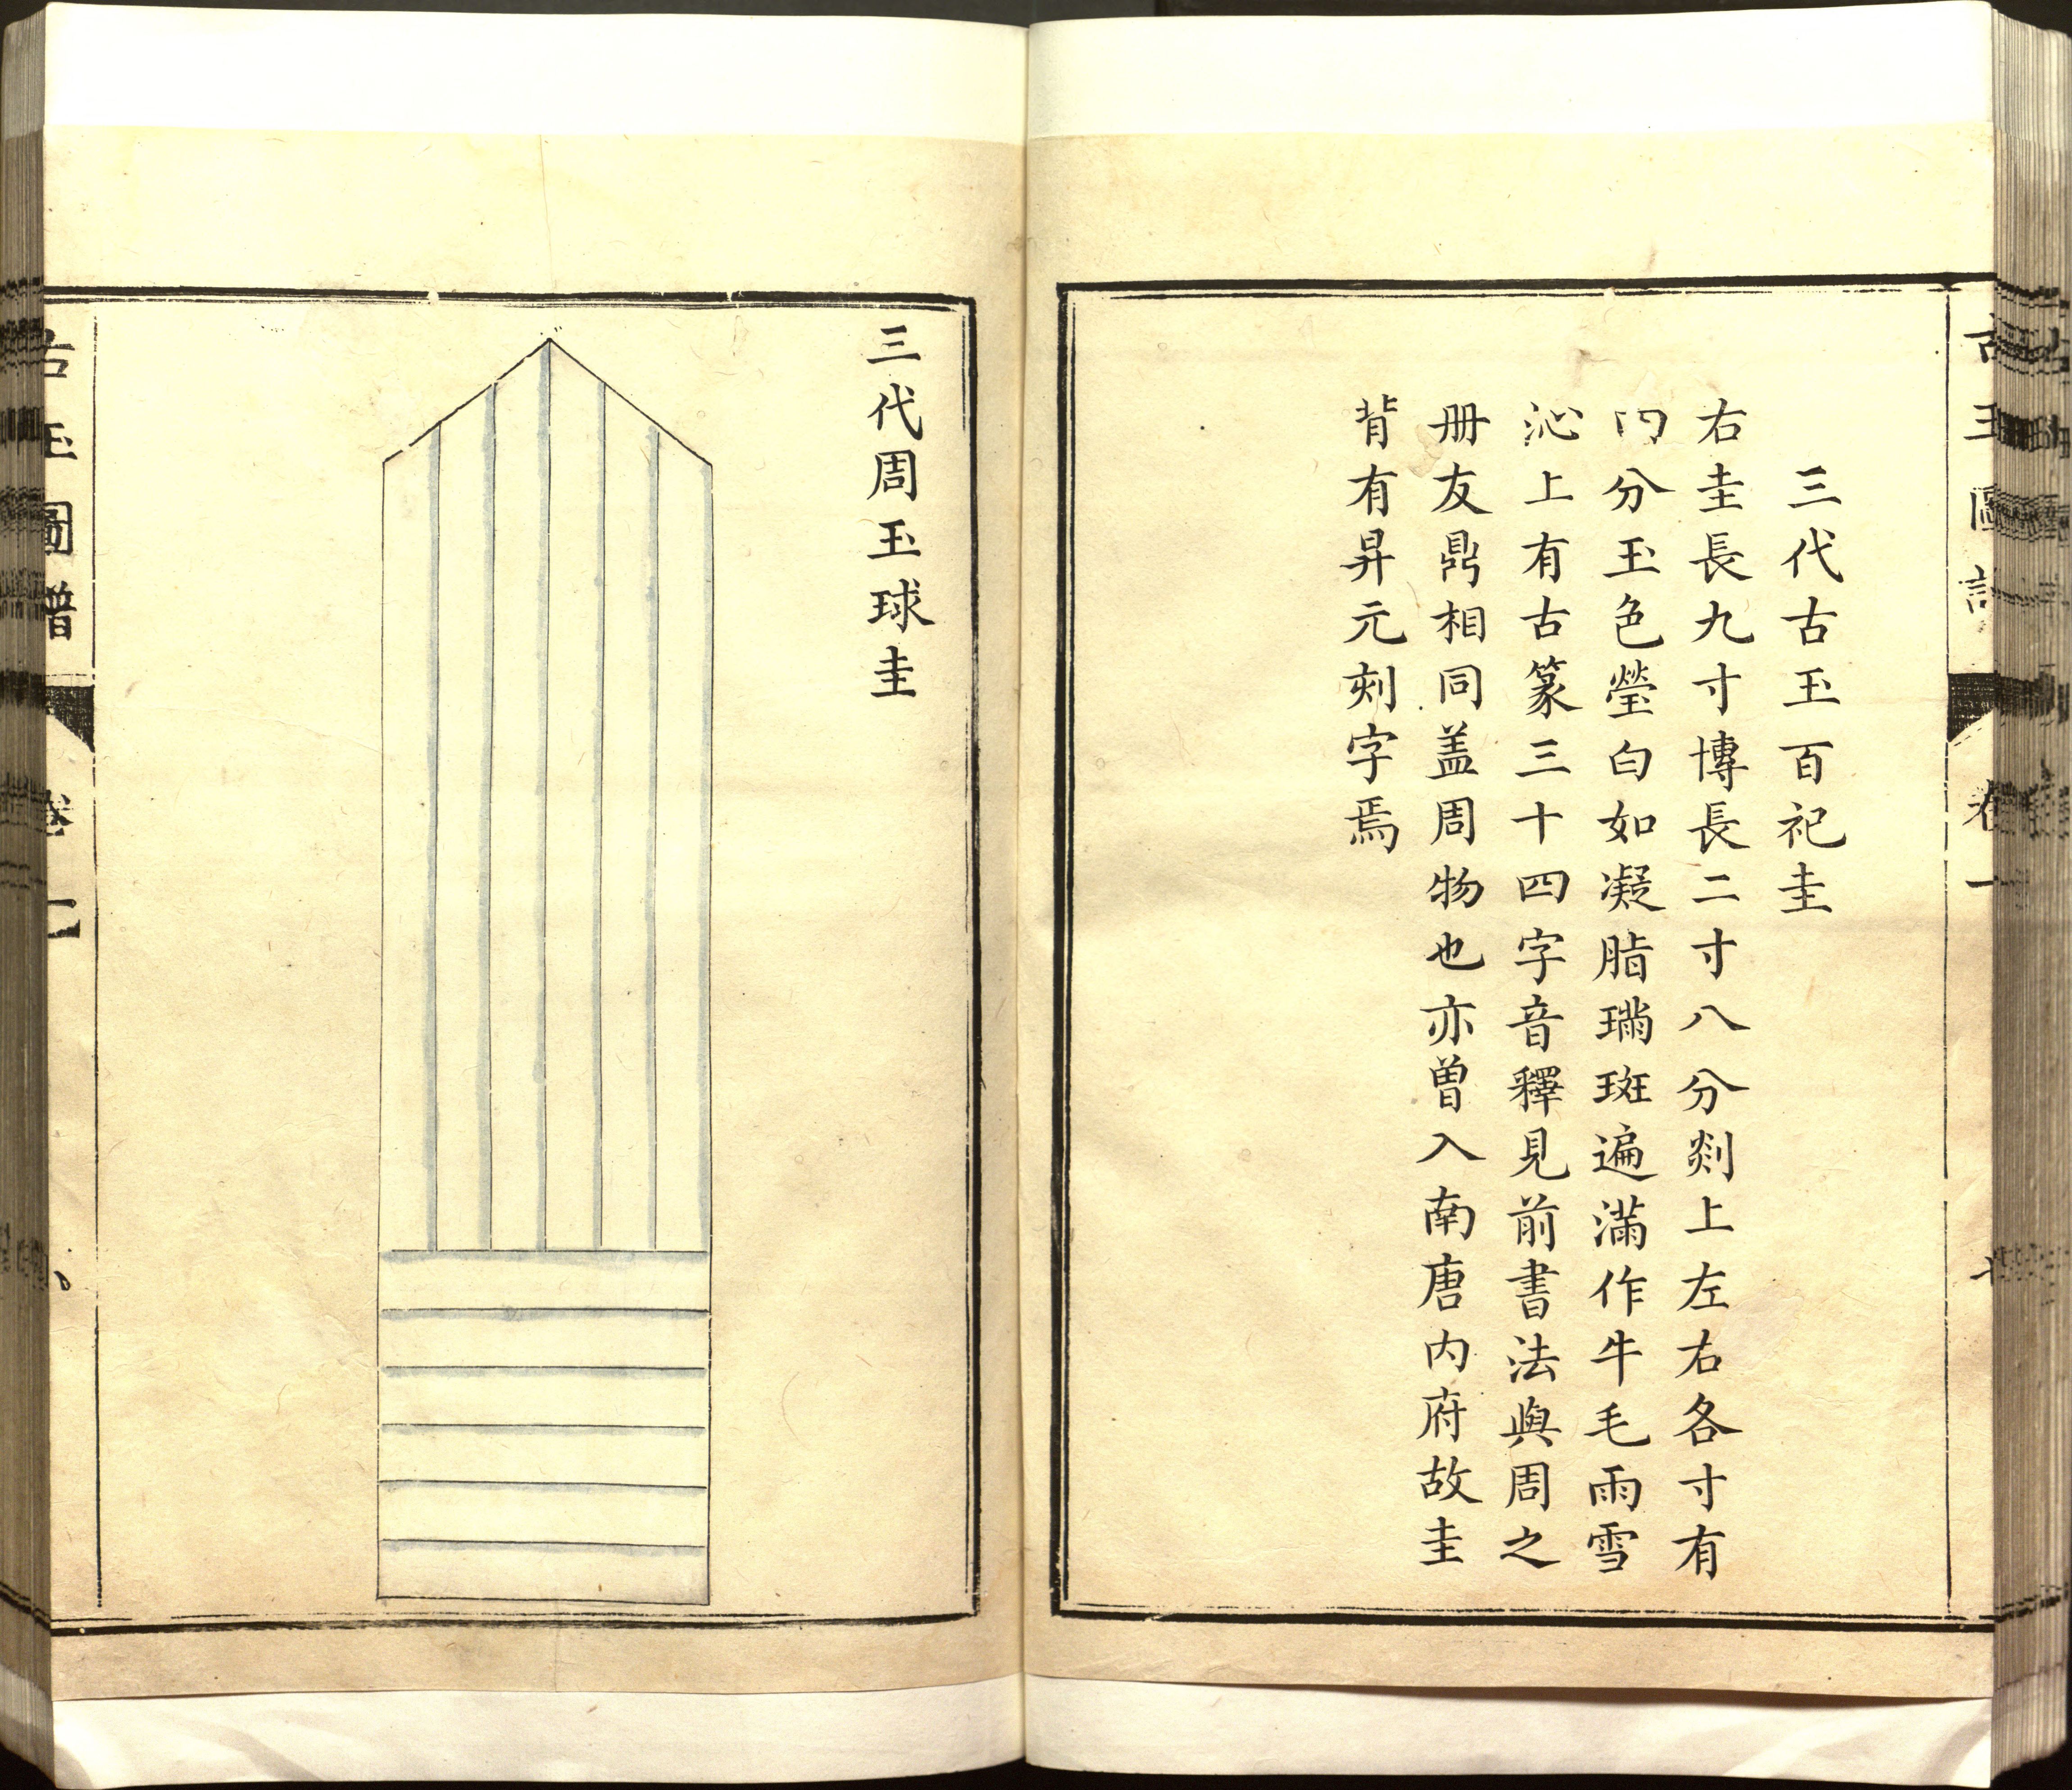 三代古玉百祀圭
右圭長九寸博長二寸八分剡上左右各寸有
四分玉色瑩白如凝脂璊斑遍滿作牛毛雨雪
沁上有古篆三十四字音釋見前書法與周之
冊友鼎相同盖周物也亦曽入南唐内府故圭
背有昇元刻字焉
三代周玉球圭
古玉圖譜